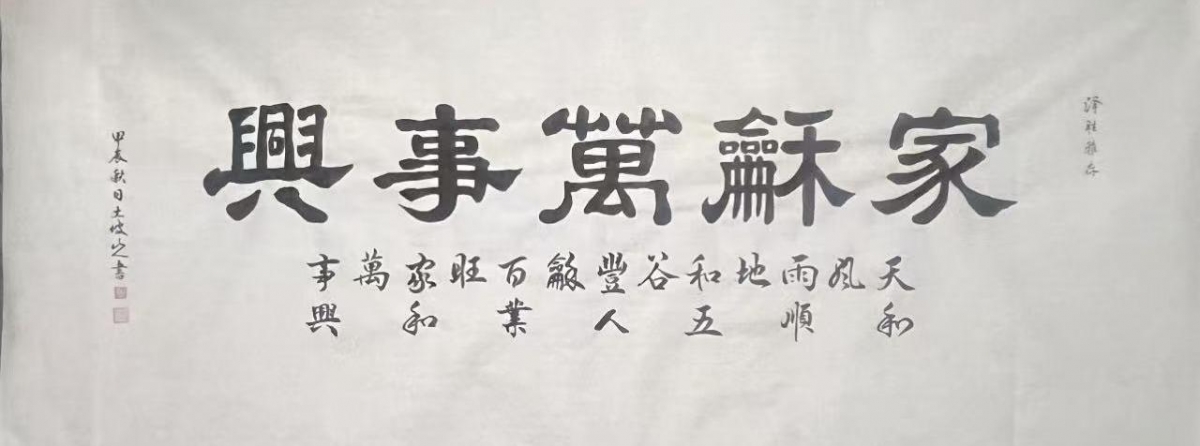 泽胜雅存
家龢萬事興
天和
风
雨順
地
和五
谷
豐人
龢
百業
旺
家和
萬
事興
甲辰秋日土坡山人書